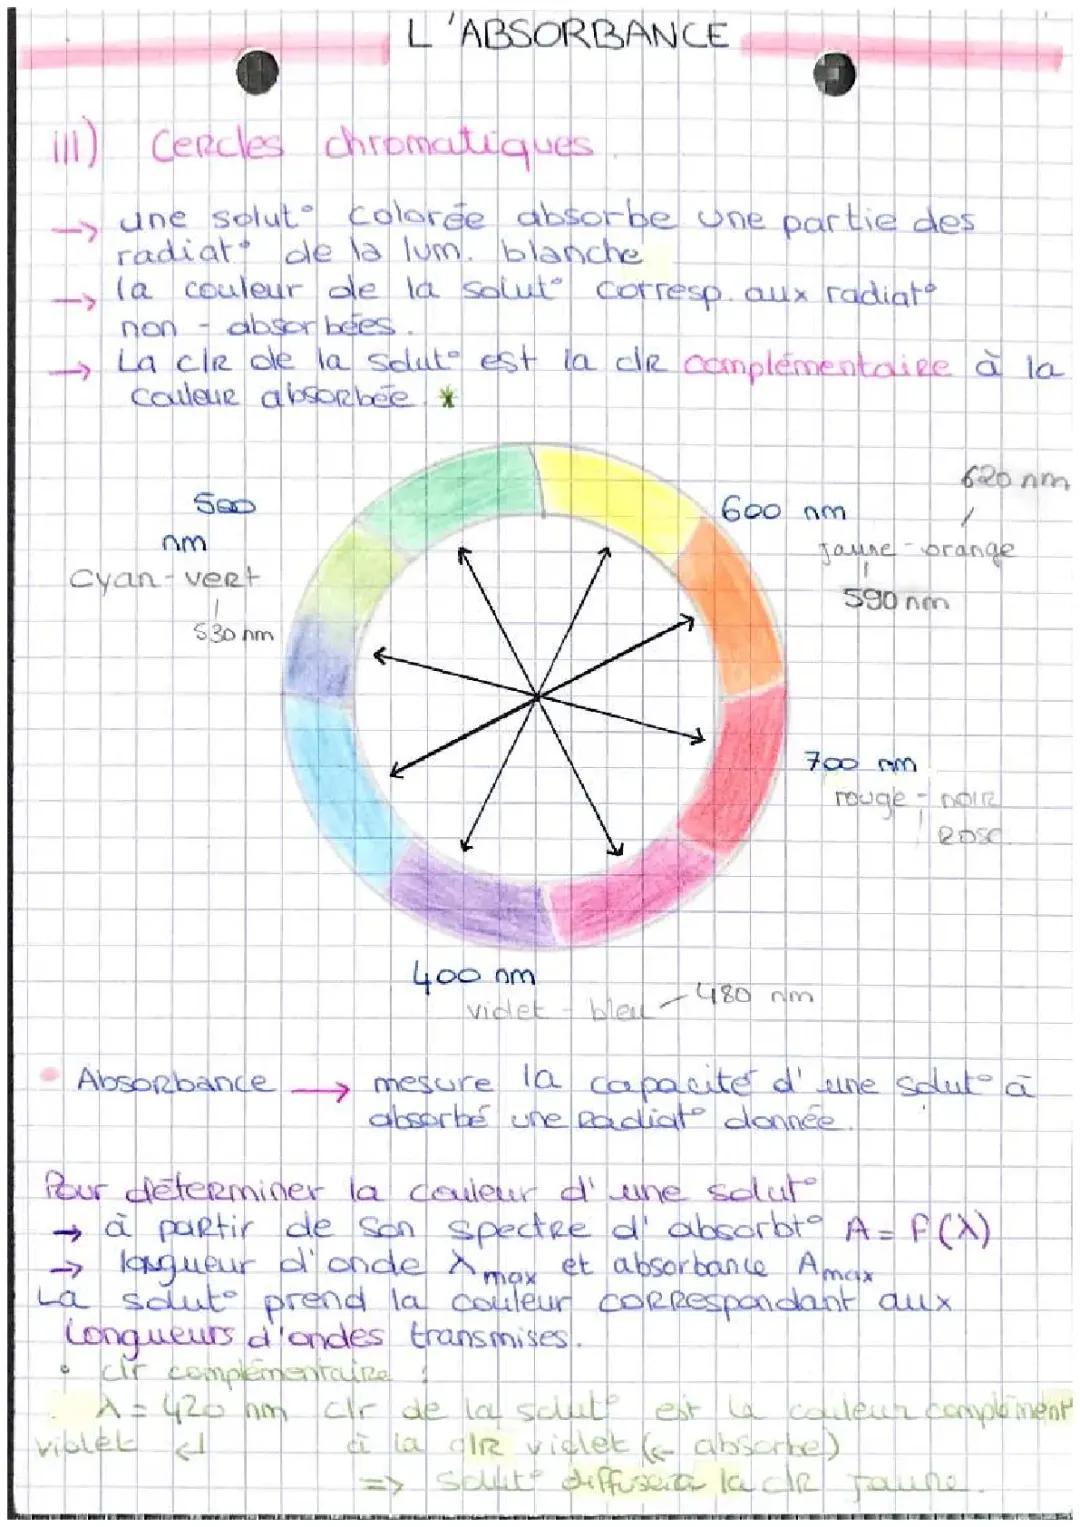 L'ABSORBANCE
III) Cercles chromatiques.
→ une solut° colorée absorbe une partie des
radiat° de la lum. blanche
→ la couleur de la solut° corresp. aux radiat°
non - absorbées.
→ La clr de la solut° est la clr complémentaire à la
couleur absorbée *
620 nm
500
nm
600 nm
jaune - orange
cyan - vert
590 nm
530 nm
700 nm
rouge - noir
rose
400 nm
violet - bleu - 480 nm
• Absorbance → mesure la capacité d'une solut° à
absorbé une radiat° donnée.
Pour déterminer la couleur d'une solut°
→ à partir de son spectre d'absorbt° A = f(λ)
→ longueur d'onde λmax et absorbance Amax
La solut° prend la couleur correspondant aux
longueurs d'ondes transmises.
• clr complémentaire :
λ = 420 nm clr de la solut° est la couleur complément
violet ↲ à la clr violet (← absorbe)
=> solut° diffusera la clr jaune.